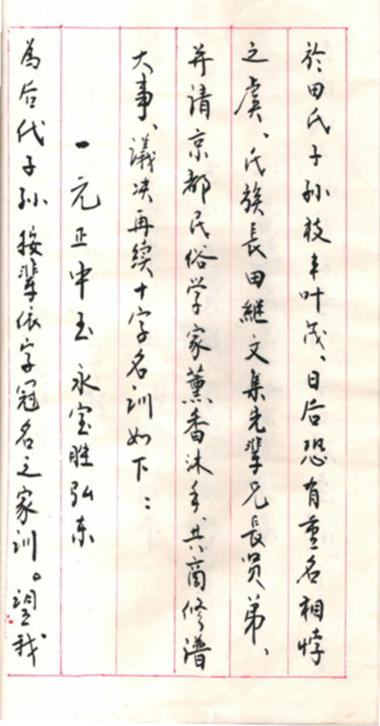 於田氏子孙枝丰叶茂、日后恐有重名相悖
之虞、氏族長田継文集先辈兄長贤弟、
并请京都民俗学家薰香沐手共商修谱
大事、議决再续十字名训如下：
一元正中玉永宝胜弘东
為后代子孙按辈依字冠名之家训。望我